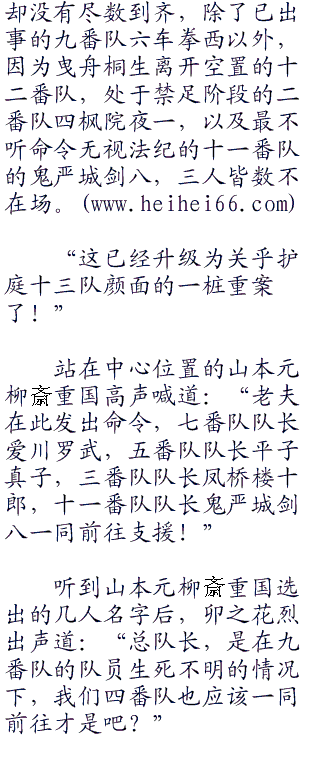 却没有尽数到齐，除了已出
事的九番队六车拳西以外，
因为曳舟桐生离开空置的十
二番队，处于禁足阶段的二
番队四枫院夜一，以及最不
听命令无视法纪的十一番队
的鬼严城剑八，三人皆数不
在场。(www.heihei66.com)
“这已经升级为关乎护
庭十三队颜面的一桩重案
了！”
站在中心位置的山本元
柳斎重国高声喊道：“老夫
在此发出命令，七番队队长
爱川罗武，五番队队长平子
真子，三番队队长凤桥楼十
郎，十一番队队长鬼严城剑
八一同前往支援！”
听到山本元柳斎重国选
出的几人名字后，卯之花烈
出声道：“总队长，是在九
番队的队员生死不明的情况
下，我们四番队也应该一同
前往才是吧？”